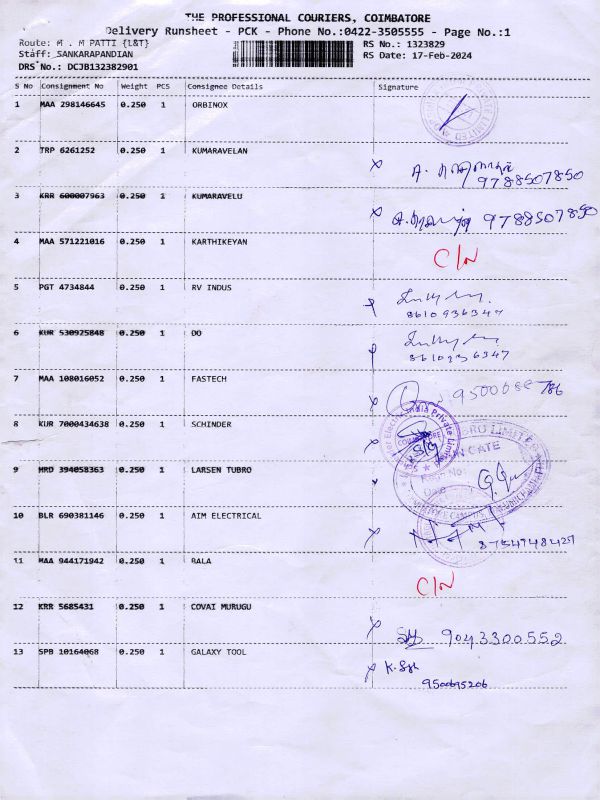 THE PROFESSIONAL COURIERS, COIMBATORE
Delivery Runsheet - PCK - Phone No.:0422-3505555 - Page No.:1
Route: M . M PATTI {L&T}
RS No.: 1323829
Staff: SANKARAPANDIAN
RS Date: 17-Feb-2024
DRS No.: DCJB132382901
S No Consignment No Weight PCS Consignee Details Signature
1 MAA 298146645 0.250 1 ORBINOX
2 TRP 6261252 0.250 1 KUMARAVELAN
9788507850
3 KRR 600007963 0.250 1 KUMARAVELU
9788507850
4 MAA 571221016 0.250 1 KARTHIKEYAN
C/N
5 PGT 4734844 0.250 1 RV INDUS
8610936347
6 KUR 530925848 0.250 1 DO
8610936347
7 MAA 108016052 0.250 1 FASTECH
786
8 KUR 7000434638 0.250 1 SCHINDER
9 MRD 394058363 0.250 1 LARSEN TUBRO
10 BLR 690381146 0.250 1 AIM ELECTRICAL
11 MAA 944171942 0.250 1 BALA
C/N
12 KRR 5685431 0.250 1 COVAI MURUGU
9043300552
13 SPB 10164068 0.250 1 GALAXY TOOL
9500695206